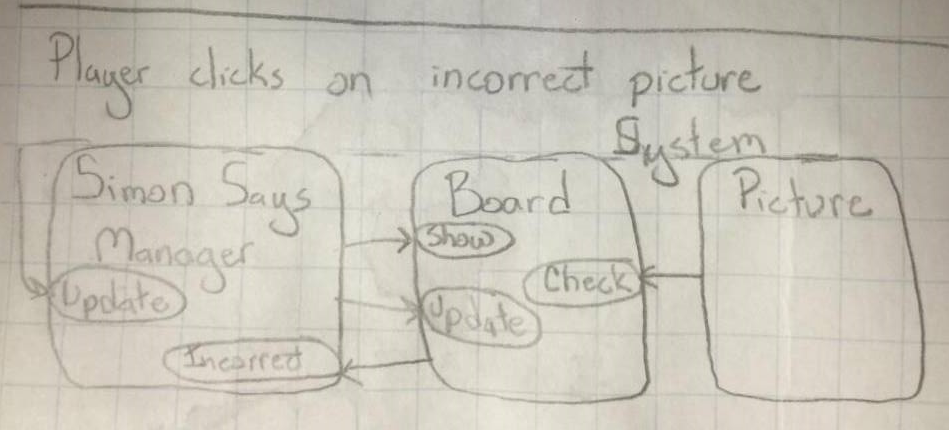 Player clicks on incorrect picture
System
Simon Says
Manager
Update
Incorrect
Board
Show
Check
Update
Picture